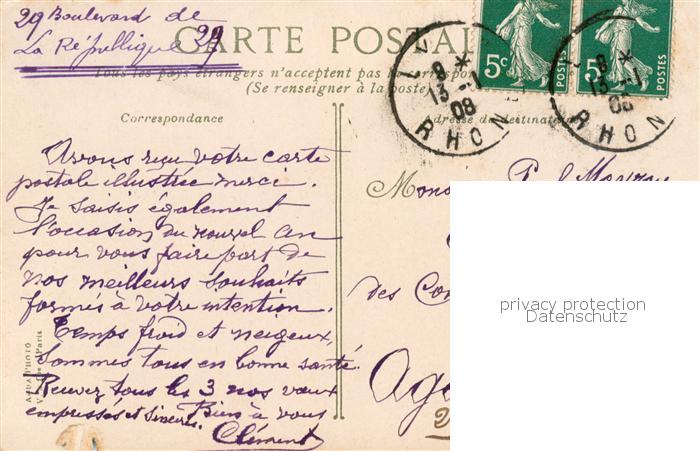 29 Boulevard de
La République 29
CARTE POSTAL
Tous les pays étrangers n'acceptent pas la correspon
(Se renseigner à la poste)
Correspondance
Adresse du destinataire
5c
POSTES
5
POSTES
8 *
13 -1
08
RHON
8 *
13 -1
08
RHON
Avons reçu votre carte
postale illustrée merci.
Je saisis également
l'occasion du nouvel an
pour vous faire part de
nos meilleurs souhaits
formés à votre intention.
Temps froid et neigeux,
sommes tous en bonne santé.
Recevez tous les 3 nos vœux
empressés et sincères. Bien à vous
Clément
Mons
des Con
Age
AQUA PHOTO
Paris
privacy protection
Datenschutz